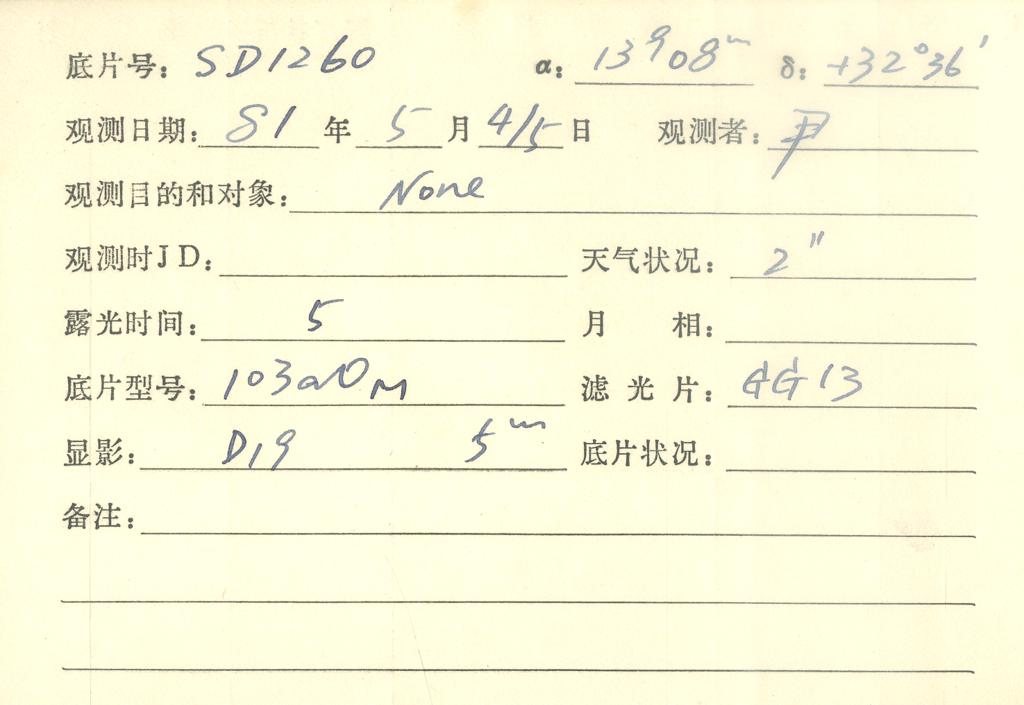 底片号: SD1260 α: 13 08ᵐ δ: +32°36′
观测日期: 81 年 5 月 4/5 日 观测者:
观测目的和对象: None
观测时JD: 天气状况: 2″
露光时间: 5 月 相:
底片型号: 103aO 滤光片: GG13
显影: D19 5ᵐ 底片状况:
备注: